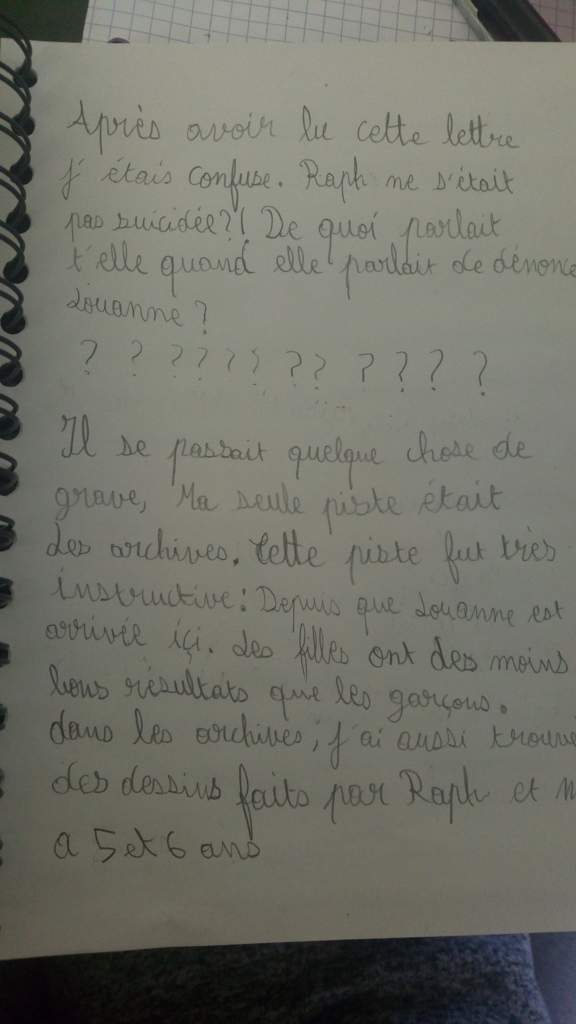 Après avoir lu cette lettre
j'étais confuse. Raph ne s'était
pas suicidée?! De quoi parlait
t'elle quand elle parlait de dénonce
Louanne?
? ? ? ? ? ? ? ? ? ? ? ?
Il se passait quelque chose de
grave, Ma seule piste était
les archives. Cette piste fut très
instructive: Depuis que Louanne est
arrivée içi. Les filles ont des moins
bons résultats que les garçons.
dans les archives, j'ai aussi trouvé
des dessins faits par Raph et m
a 5 et 6 ans